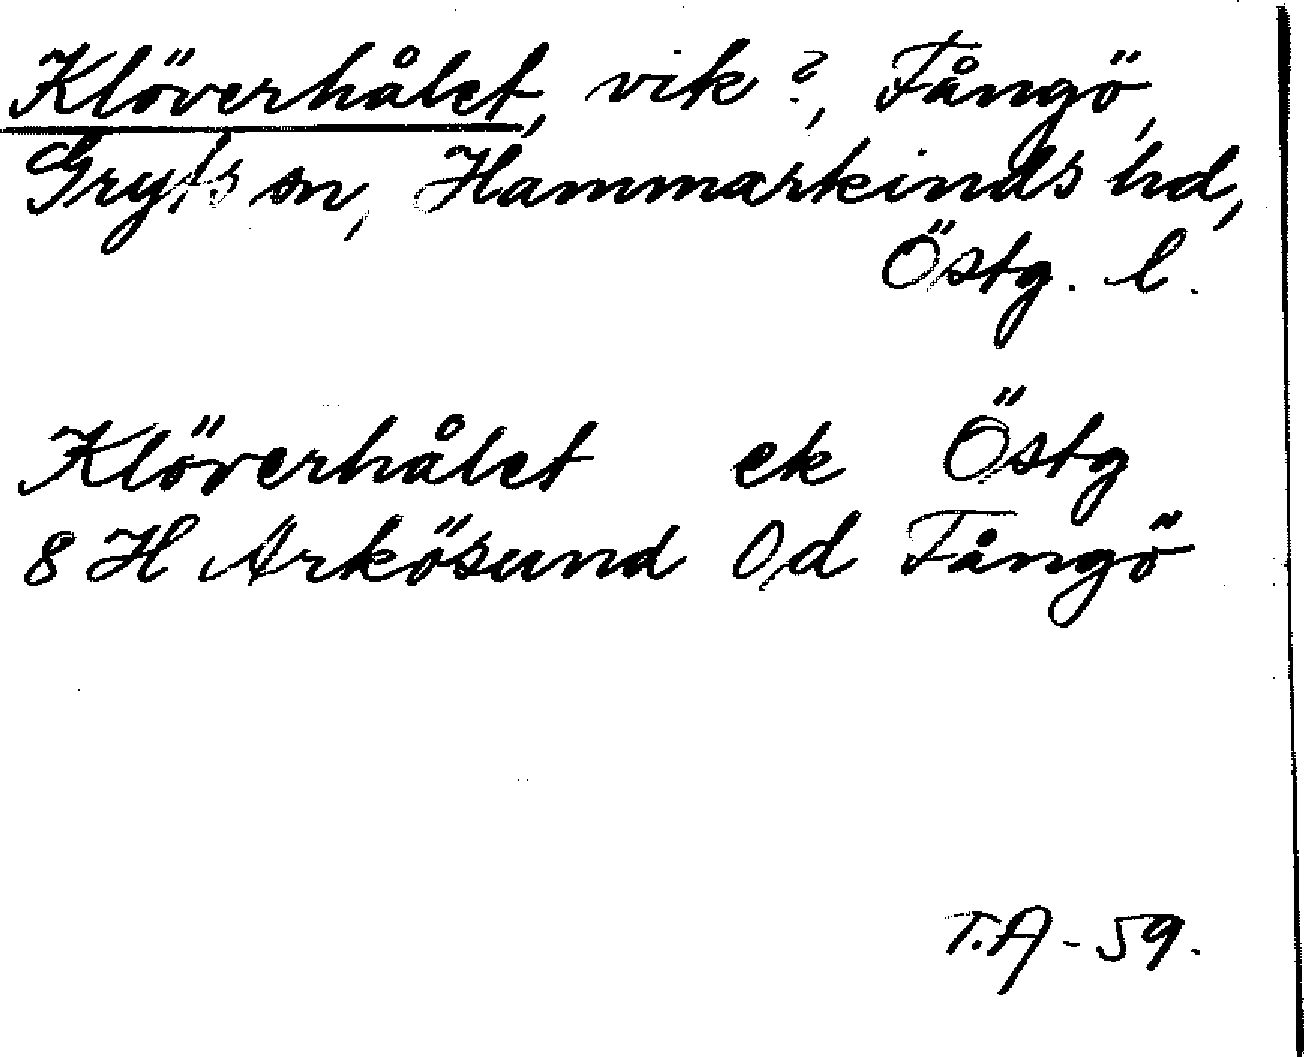 Klöverhålet, vik?, Fångö,
Gryts sn, Hammarkinds hd,
Östg. l.
Klöverhålet ek Östg
8 H Arkösund 0d Fångö
T.A-59.